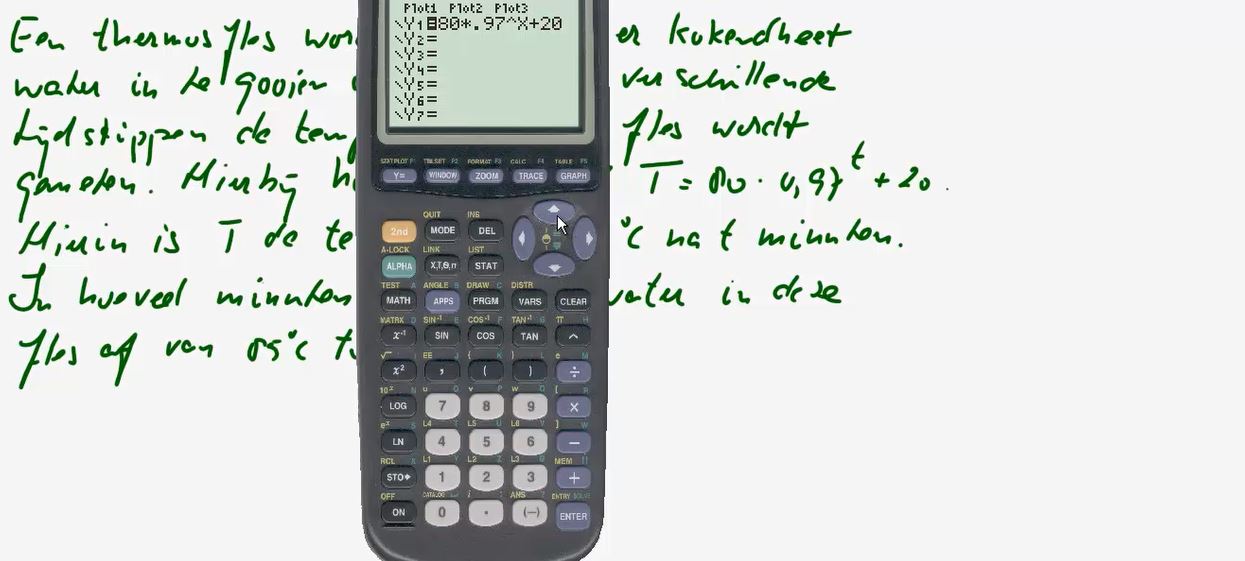 Plot1 Plot2 Plot3
\Y1=80*.97^X+20
\Y2=
\Y3=
\Y4=
\Y5=
\Y6=
\Y7=
Een thermosfles wor er kokendheet
water in te gooien verschillende
tijdstippen de tem fles wordt
gemeten. Hierbij h T = 80 · 0,97^t + 20.
Hierin is T de te °C na t minuten.
In hoeveel minuten water in deze
fles af van 85°C t
STAT PLOT F1 TBLSET F2 FORMAT F3 CALC F4 TABLE F5
Y= WINDOW ZOOM TRACE GRAPH
QUIT INS
2nd MODE DEL
A-LOCK LINK LIST
ALPHA X,T,θ,n STAT
TEST A ANGLE B DRAW C DISTR
MATH APPS PRGM VARS CLEAR
MATRX D SIN⁻¹ E COS⁻¹ F TAN⁻¹ G π H
x⁻¹ SIN COS TAN ^
√ I EE J { K } L e M
x² , ( ) ÷
10ˣ N u O v P w Q [ R
LOG 7 8 9 ×
eˣ S L4 T L5 U L6 V ] W
LN 4 5 6 −
RCL X L1 Y L2 Z L3 θ MEM "
STO▸ 1 2 3 +
OFF CATALOG i : ANS ? ENTRY SOLVE
ON 0 . (−) ENTER